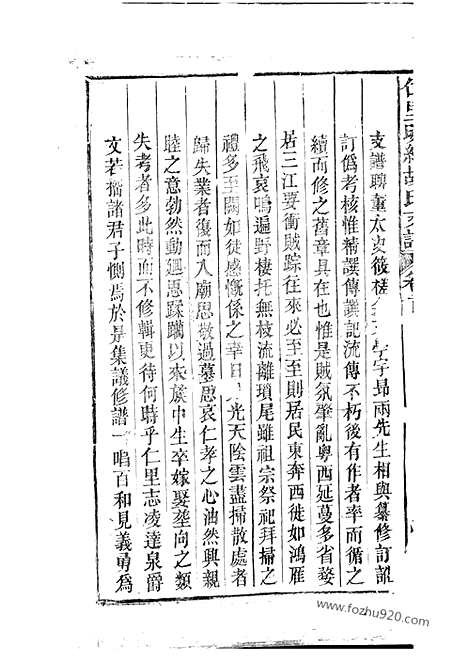 仁里明經胡氏支譜 卷首
支譜聘董太史筱槎 宇昻兩先生相與纂修訂訛
訂僞考核惟精譔傳讚記流傳不朽後有作者率而循之
續而修之舊章具在也惟是賊氛肇亂粵西延蔓多省婺
居三江要衝賊踪往來必至至則居民東奔西徙如鴻雁
之飛哀鳴遍野棲托無枝流離瑣尾雖祖宗祭祀拜掃之
禮多至闕如徒感慨係之幸日 光天陰雲盡掃散處者
歸失業者復而入廟思敬過墓思哀仁孝之心油然興親
睦之意勃然動廻思蹂躪以來族中生卒嫁娶塋向之類
失考者多此時而不修輯更待何時乎仁里志凌達泉爵
文若 諸君子惻焉於是集議修譜一唱百和見義勇爲
www.fozhu920.com